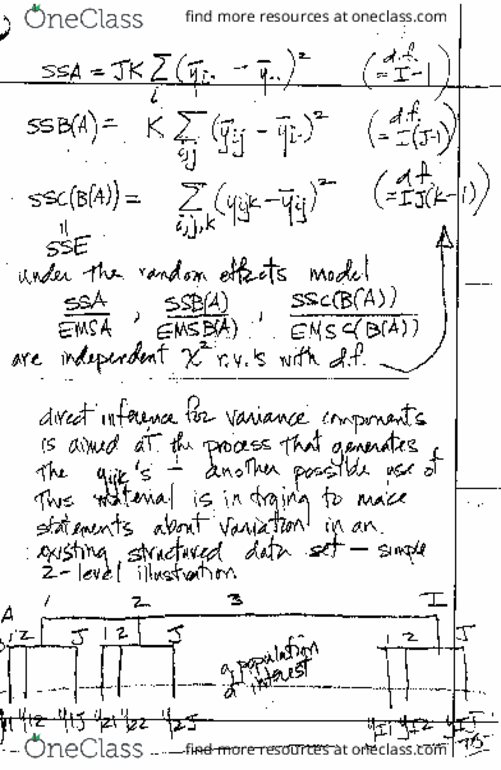 OneClass find more resources at oneclass.com
SSA = JK Σ_i (ȳ_i. − ȳ..)² (d.f. = I−1)
SSB(A) = K Σ_{i,j} (ȳ_ij − ȳ_i.)² (d.f. = I(J−1))
SSC(B(A)) = Σ_{i,j,k} (y_ijk − ȳ_ij)² (d.f. = IJ(K−1))
||
SSE
under the random effects model
SSA/EMSA , SSB(A)/EMSB(A) , SSC(B(A))/EMSC(B(A))
are independent χ² r.v.'s with d.f.
direct inference for variance components
is aimed at the process that generates
the y_ijk's – another possible use of
this material is in trying to make
statements about variation in an
existing structured data set – simple
2-level illustration.
A 1 2 3 I
1 2 J 1 2 J 1 2 J
a population
of interest
y11 y12 y1J y21 y22 y2J yI1 yI2 yIJ
OneClass find more resources at oneclass.com